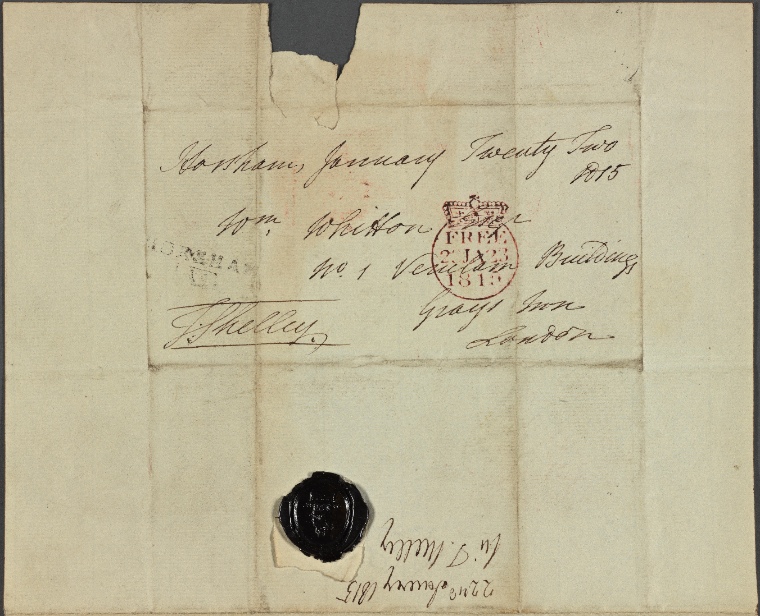 Horsham, January Twenty Two
1815
Wm. Whitton Esqr
No. 1 Verulam Buildings
Grays Inn
London
TShelley.
HORSHAM
FREE
23 JA 23
1815
22nd January 1815
Sir T. Shelley